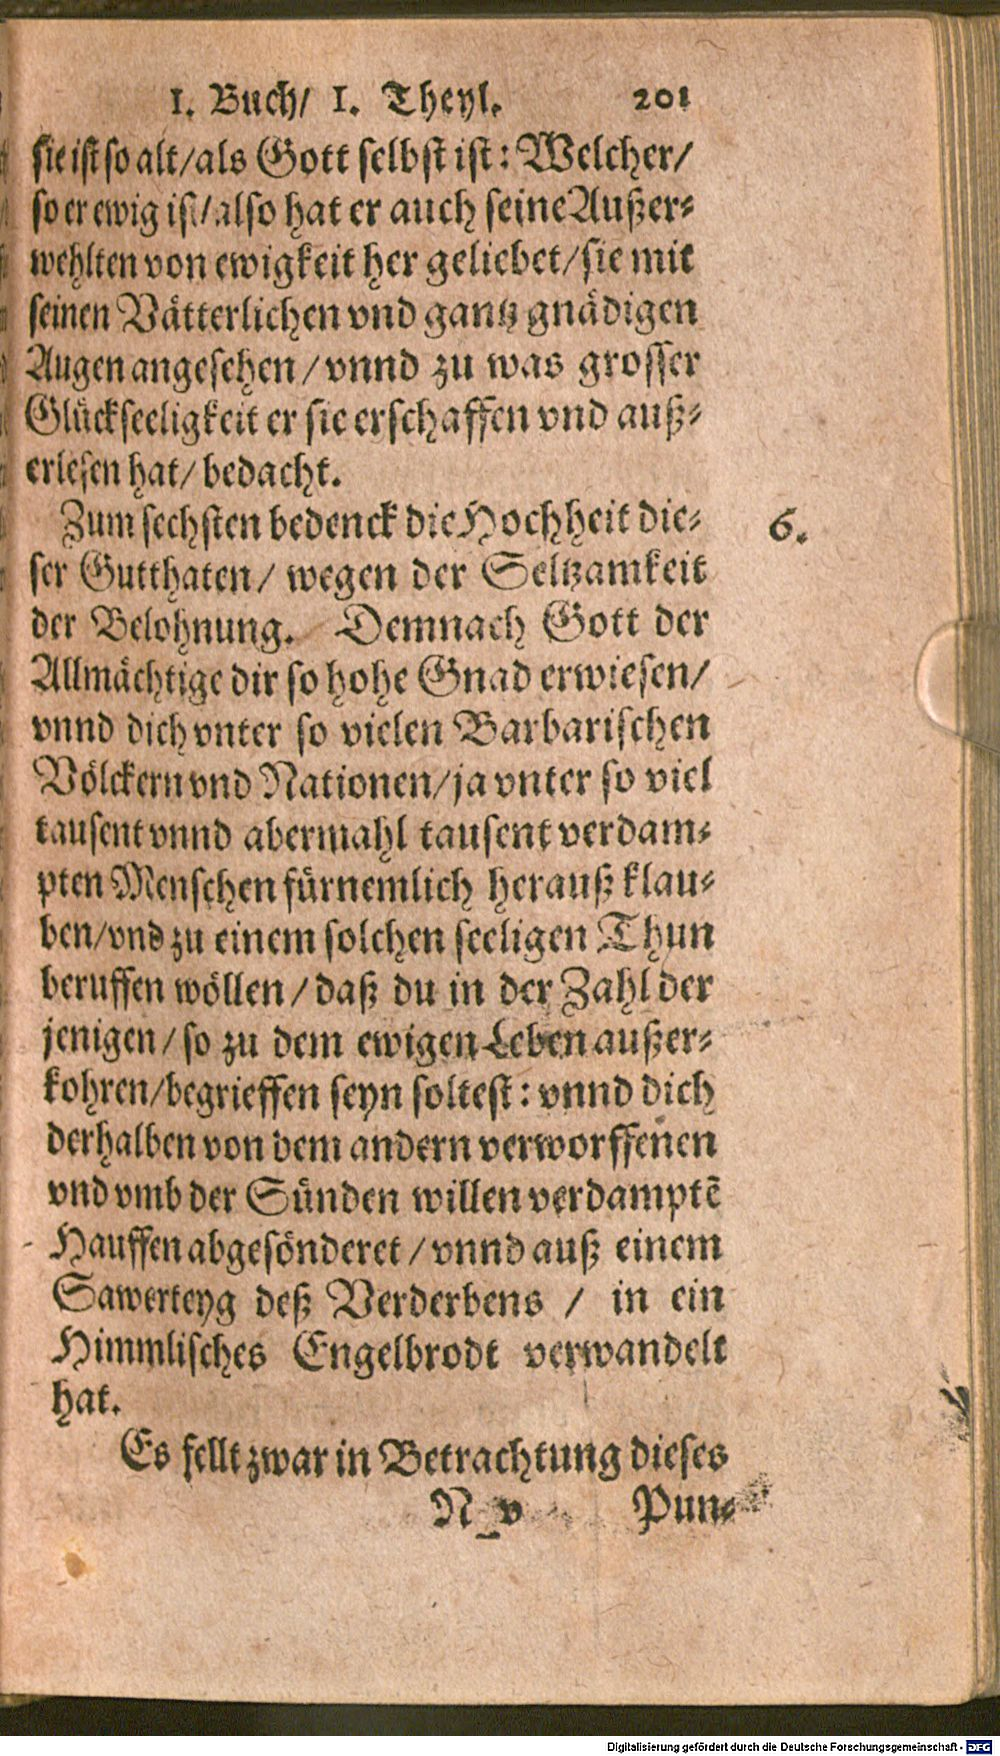 1. Buch/ 1. Theyl. 201
sie ist so alt/als Gott selbst ist: Welcher/
so er ewig ist/also hat er auch seine Außer-
wehlten von ewigkeit her geliebet/sie mit
seinen Vätterlichen vnd gantz gnädigen
Augen angesehen/vnnd zu was grosser
Glückseeligkeit er sie erschaffen vnd auß-
erlesen hat/bedacht.
Zum sechsten bedenck die Hochheit die- 6.
ser Gutthaten/ wegen der Seltzamkeit
der Belohnung. Demnach Gott der
Allmächtige dir so hohe Gnad erwiesen/
vnnd dich vnter so vielen Barbarischen
Völckern vnd Nationen/ja vnter so viel
tausent vnnd abermahl tausent verdam-
pten Menschen fürnemlich herauß klau-
ben/vnd zu einem solchen seeligen Thun
beruffen wöllen/daß du in der Zahl der
jenigen/so zu dem ewigen Leben außer-
kohren/begrieffen seyn soltest: vnnd dich
derhalben von dem andern verworffenen
vnd vmb der Sünden willen verdamptē
Hauffen abgesönderet/vnnd auß einem
Sawerteyg deß Verderbens / in ein
Himmlisches Engelbrodt verwandelt
hat.
Es fellt zwar in Betrachtung dieses
N v Pun-
Digitalisierung gefördert durch die Deutsche Forschungsgemeinschaft - DFG